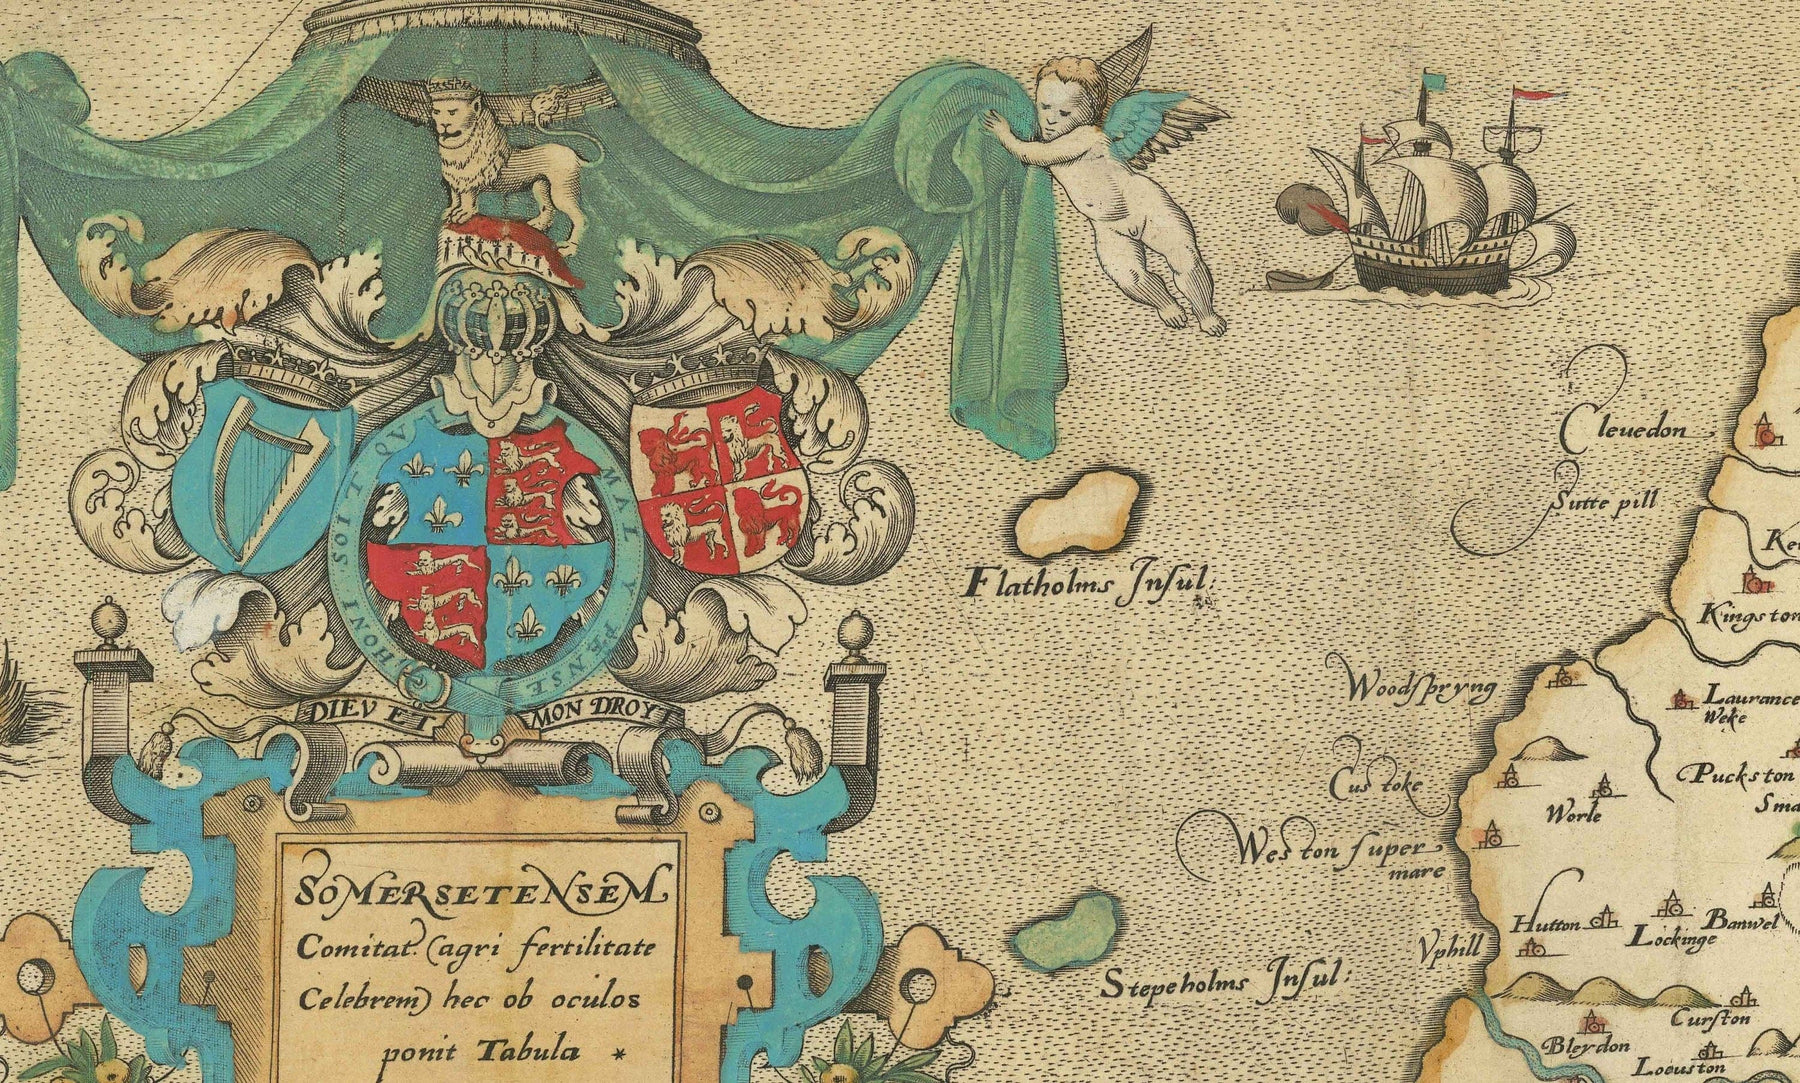 HONI SOIT QVI
MAL Y PENSE
DIEV ET MON DROYT
SOMERSETENSEM
Comitat. (agri fertilitate
Celebrem) hec ob oculos
ponit Tabula *
Cleuedon
Sutte pill
Flatholms Insul:
Kingston
Woodspryng
Laurance
Weke
Puckston
Custoke
Worle
Weston super
mare
Hutton
Lockinge
Banwel
Vphill
Stepeholms Insul:
Curston
Bleydon
Loxuston